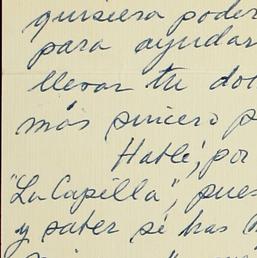 quisiera poder
para ayudar
llevar tu do
más sincero p
Hablé, por
"La Capilla", pues
y saber si has